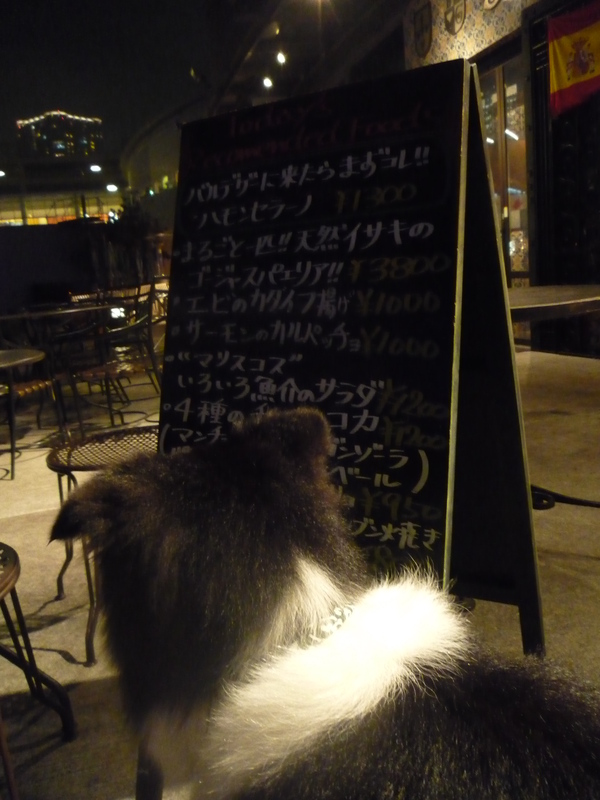 Today's
Recommended Foods
バルデゲに来たらまずコレ!!
ハモンセラーノ ¥1300
・まるごと一匹!! 天然イサキの
ゴージャスパエリア!! ¥3800
・エビのカダイフ揚げ ¥1000
・サーモンのカルペッチョ ¥1000
・"マリスコス"
いろいろ魚介のサラダ ¥1200
・4種の コカ ¥1200
(マンチ ゴンゾーラ
ベール)
¥950
ブン焼き